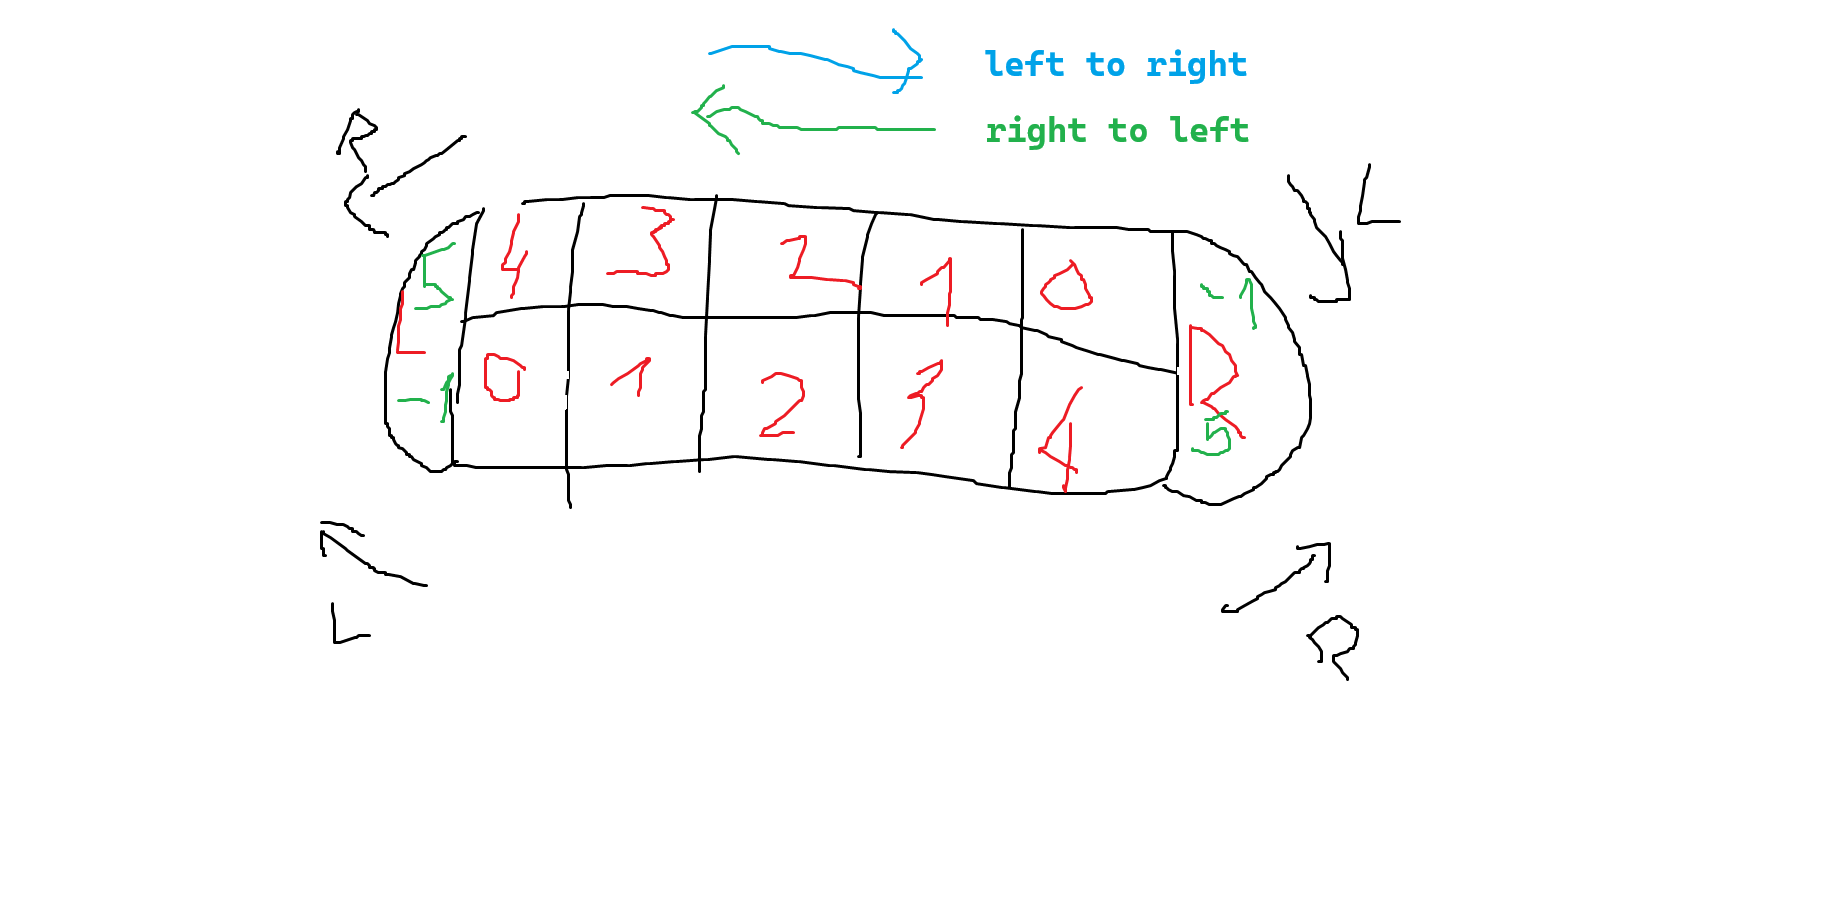 left to right
right to left
R
L
5 4 3 2 1 0 -1
L R
-1 0 1 2 3 4 5
L
R